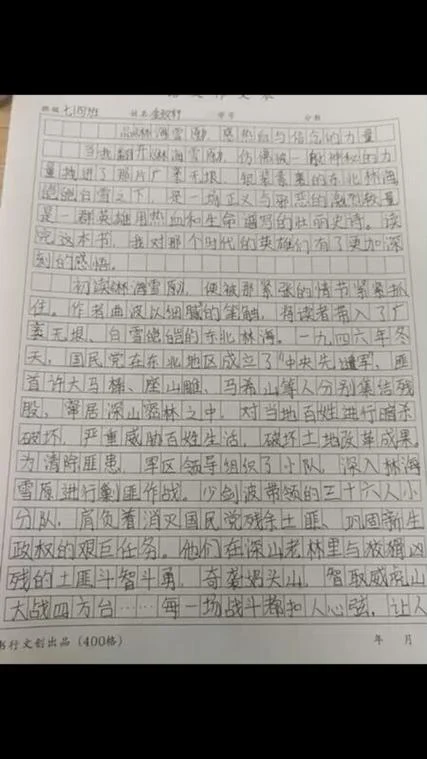 语文作文本
班级 七(四)班 姓名 学号 分数
品《林海雪原》，感热血与信念的力量
当我翻开《林海雪原》，仿佛被一股神秘的力
量拽进了那片广袤无垠、银装素裹的东北林海
皑皑白雪之下，是一场正义与邪恶的激烈较量
是一群英雄用热血和生命谱写的壮丽史诗。读
完这本书，我对那个时代的英雄们有了更加深
刻的感悟。
初读《林海雪原》，便被那紧张的情节紧紧抓
住。作者曲波以细腻的笔触，将读者带入了广
袤无垠、白雪皑皑的东北林海。一九四六年冬
天，国民党在东北地区成立了“中央先遣军”，匪
首许大马棒、座山雕、马希山等人分别集结残
股，窜居深山密林之中，对当地百姓进行暗杀
破坏，严重威胁百姓生活，破坏土地改革成果。
为清除匪患，军区领导组织了小队，深入林海
雪原进行剿匪作战。少剑波带领的三十六人小
分队，肩负着消灭国民党残余土匪、巩固新生
政权的艰巨任务。他们在深山老林里与狡猾凶
残的土匪斗智斗勇，奇袭奶头山，智取威虎山
大战四方台……每一场战斗都扣人心弦，让人
书行文创出品（400格） 年 月